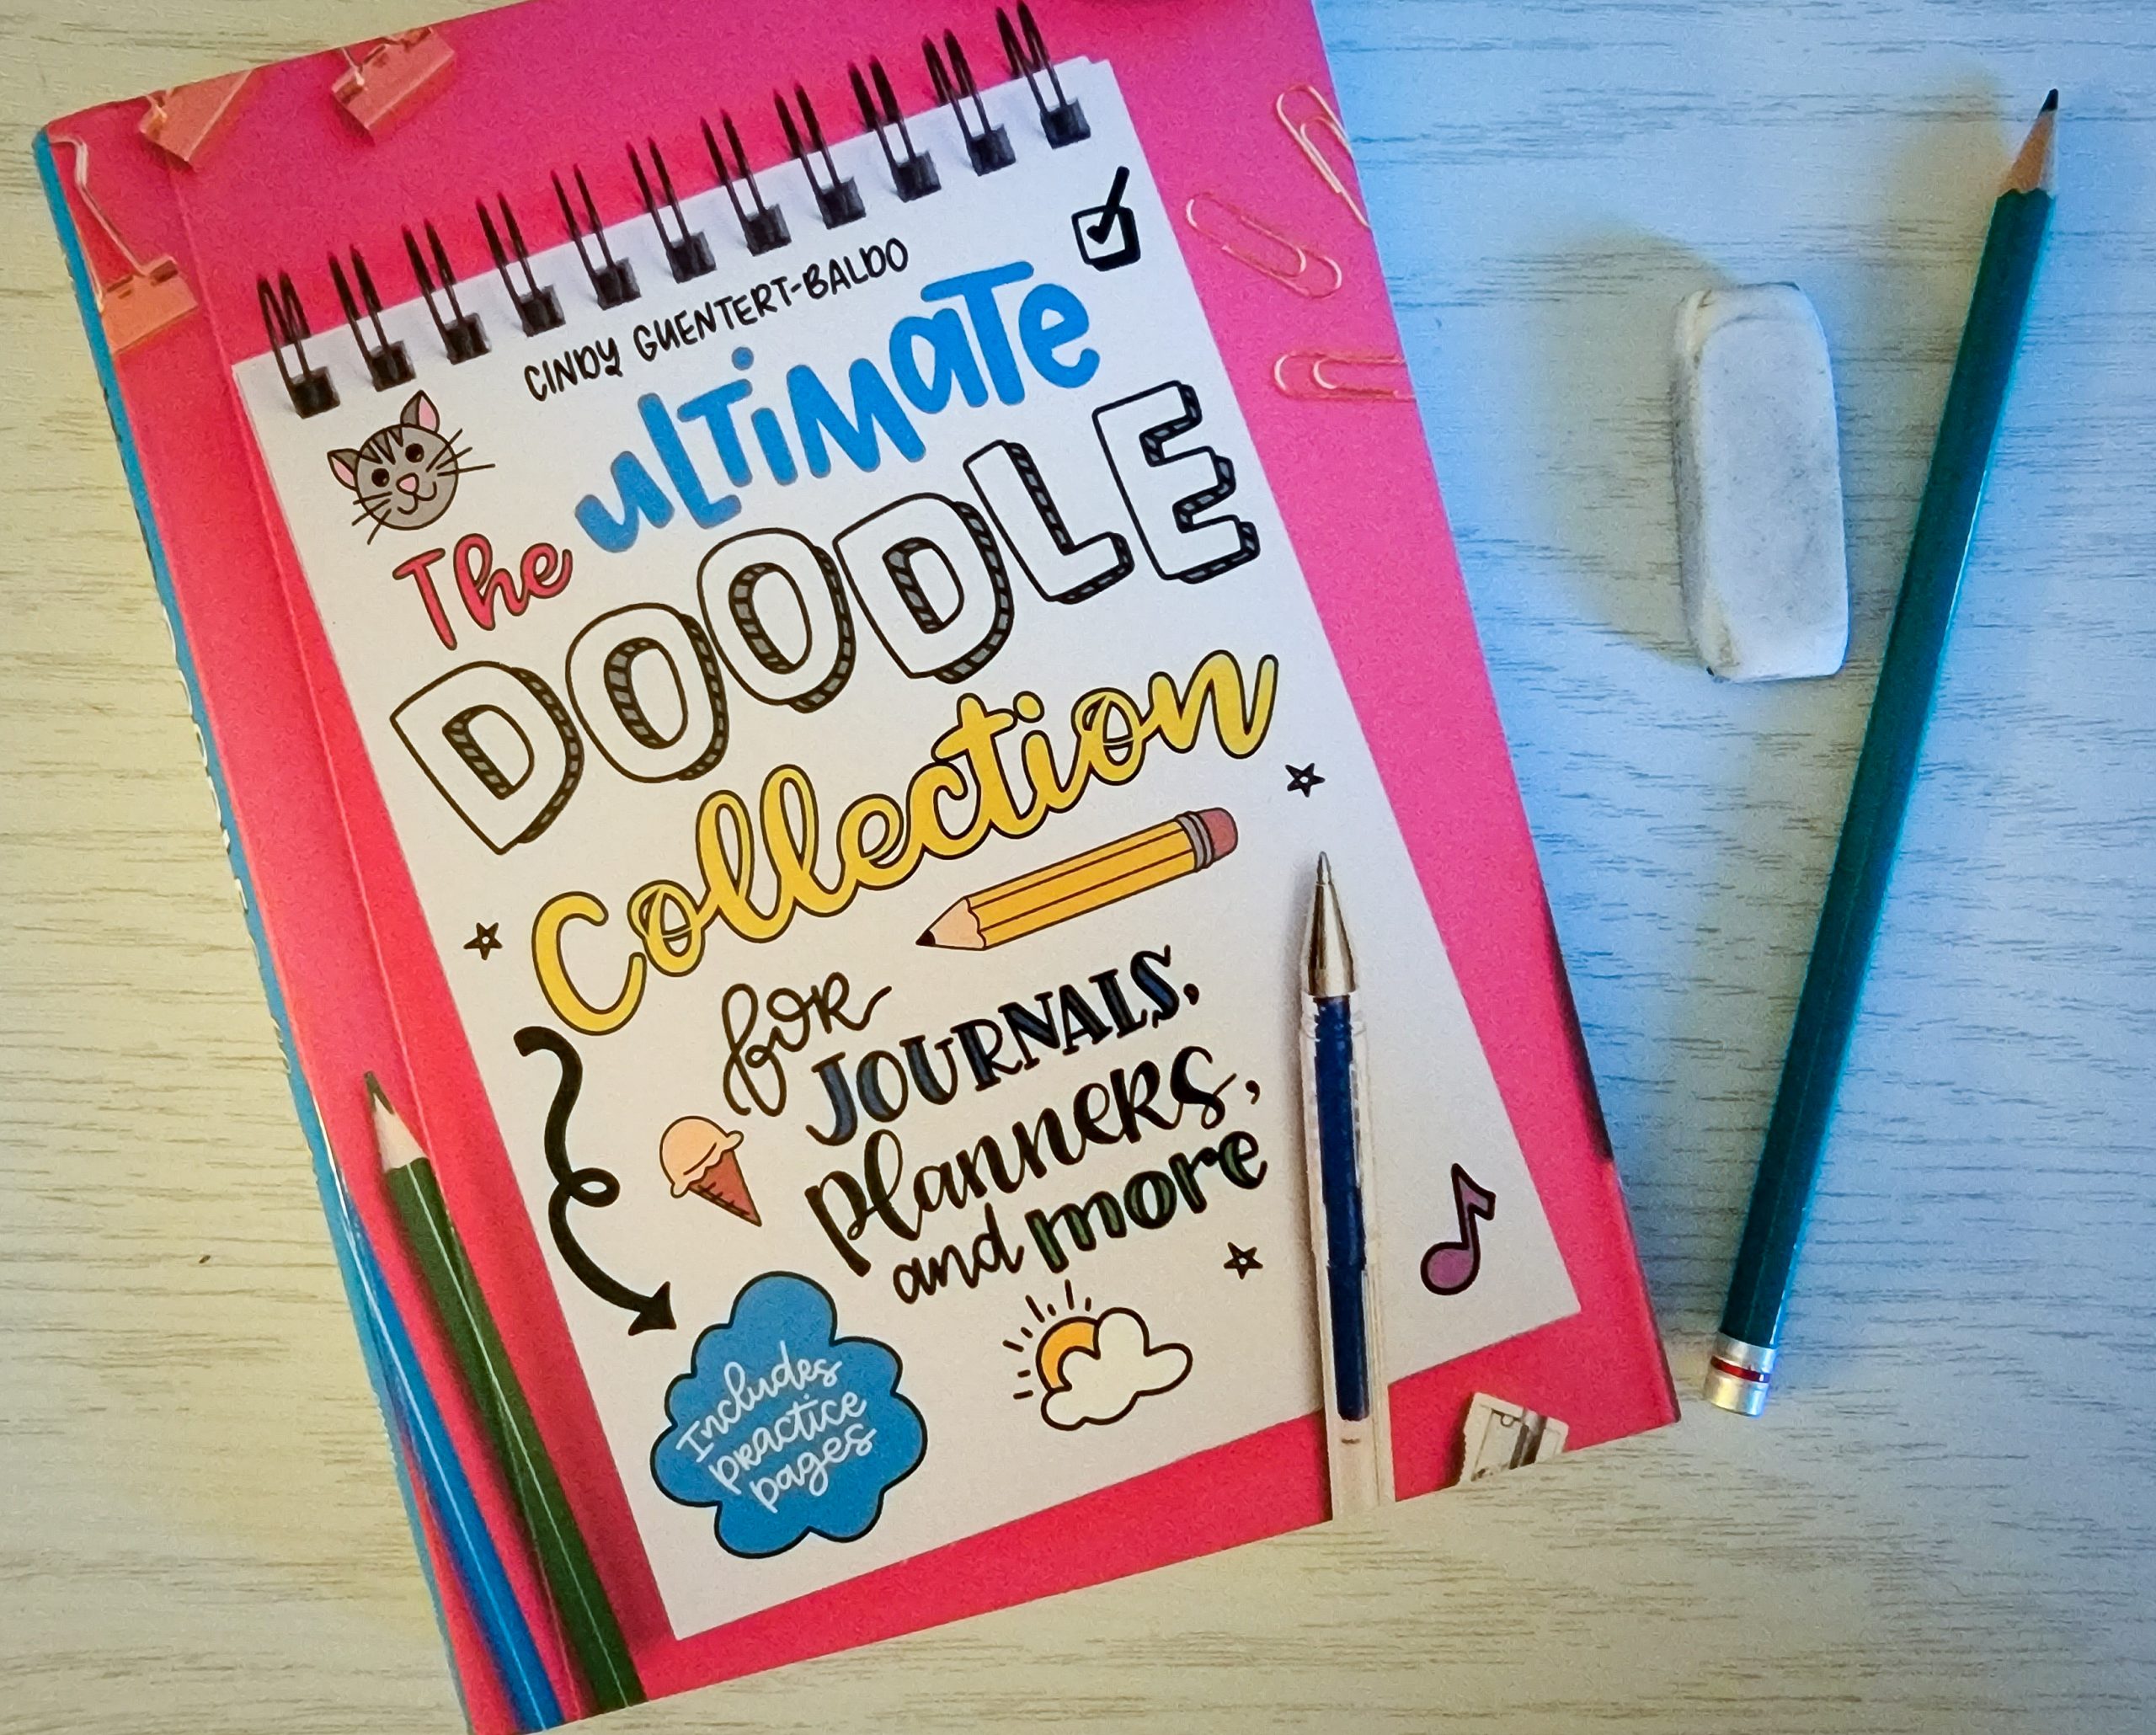 CINDY GUENTERT-BALDO
The ULTIMATE
DOODLE
Collection
for
JOURNALS,
Planners,
and more
Includes
practice
pages